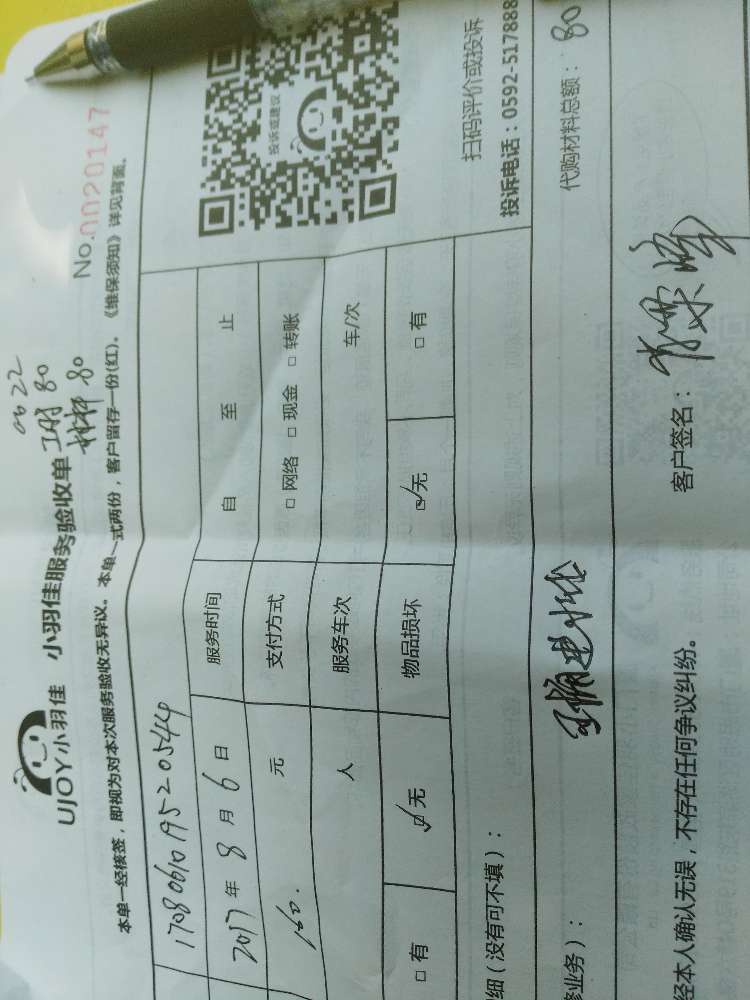 0622
工时 80
材料 80
UJOY小羽佳 小羽佳服务验收单
No.0020147
本单一经核签，即视为对本次服务验收无异议。本单一式两份，客户留存一份(红)。《维保须知》详见背面。
投诉或建议
1708061019520544
2017 年 8 月 6 日 服务时间 自 至 止
160. 元 支付方式 □ 网络 □ 现金 □ 转账
人 服务车次 车/次
□ 有 ☑ 无 物品损坏 ☑ 无 □ 有
扫码评价或投诉
细（没有可不填）：
投诉电话：0592-517888
修业务）：
代购材料总额：80
客户签名：
经本人确认无误，不存在任何争议纠纷。